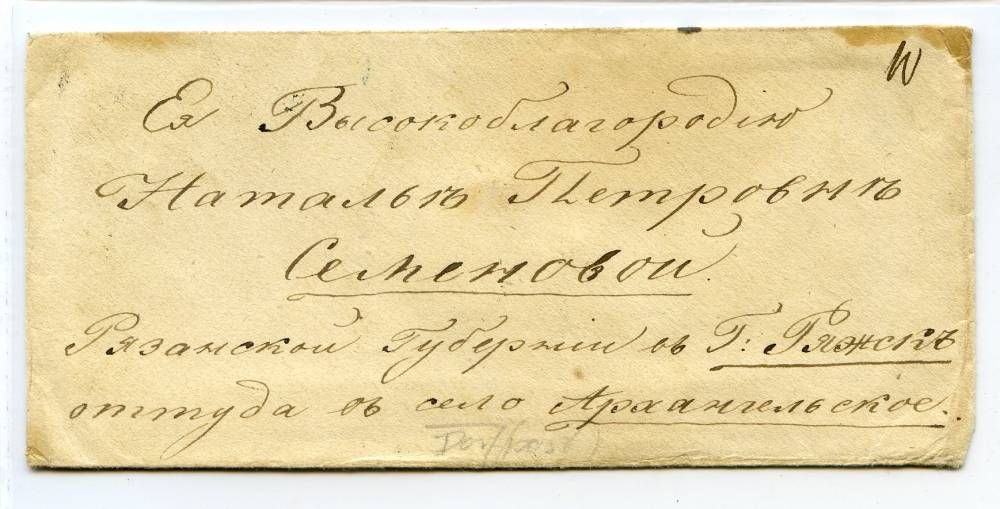 Ея Высокоблагородію
Натальѣ Петровнѣ
Семеновой.
Рязанской Губерніи въ Г: Ряжскъ
оттуда въ село Архангельское.